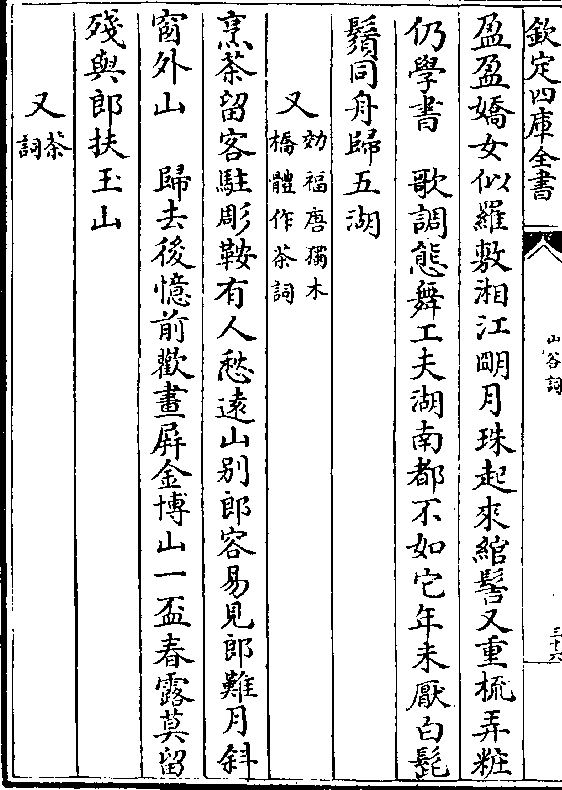 欽定四庫全書
山谷詞
三十六
盈盈嬌女似羅敷湘江明月珠起來綰髻又重梳弄粧
仍學書　歌調態舞工夫湖南都不如它年未厭白髭
鬚同舟歸五湖
又效福唐獨木橋體作茶詞
烹茶留客駐彫鞍有人愁遠山别郎容易見郎難月斜
窗外山　歸去後憶前歡畫屏金博山一盃春露莫留
殘與郎扶玉山
又茶詞